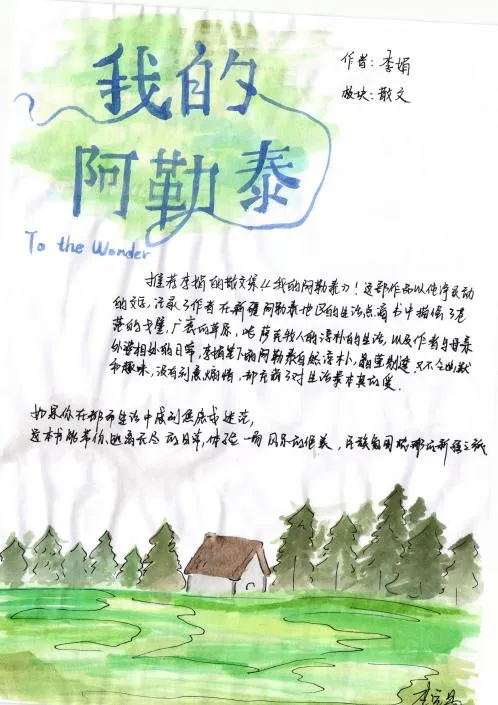 我的
阿勒泰
To the Wonder
作者：李娟
板块：散文
推荐李娟的散文集《我的阿勒泰》！这部作品以纯净灵动
的文字，记录了作者在新疆阿勒泰地区的生活点滴，书中描绘了苍
茫的戈壁，广袤的草原，哈萨克牧人的淳朴的生活，以及作者与母亲
外婆相处的日常，李娟笔下的阿勒泰自然淳朴，却不乏幽默
和趣味，没有刻意煽情，却充满了对生活最本真的爱。
如果你在都市生活中感到焦虑或迷茫，
这本书能带你逃离 的日常，体验一场 的 美，